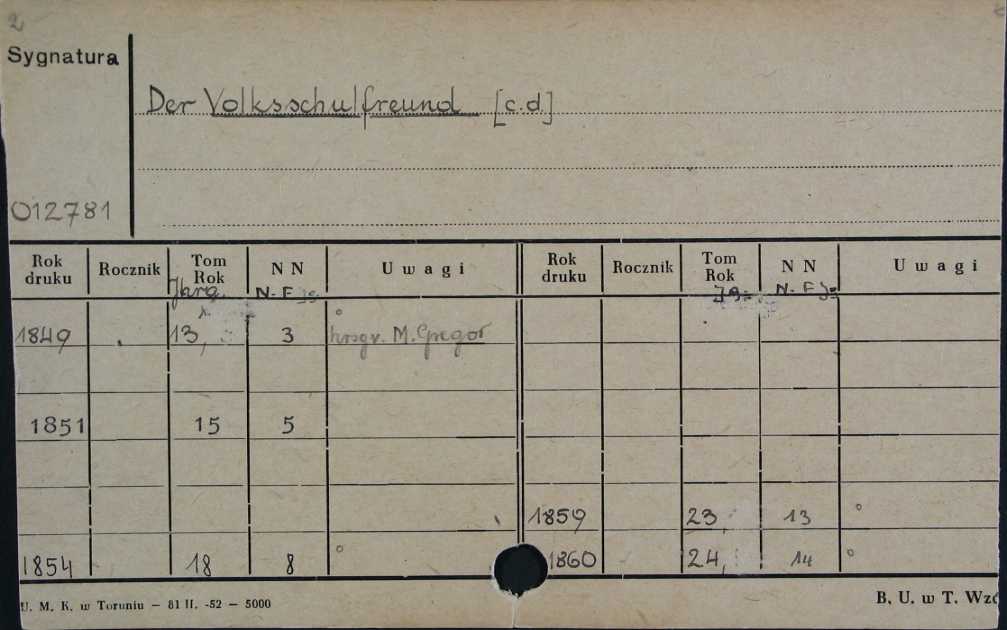 2
Sygnatura
Der Volksschulfreund [c.d.]
012781
Rok druku Rocznik Tom Rok N N Uwagi Rok druku Rocznik Tom Rok N N Uwagi
Jhrg. N. F Jg. Jg. N. F Jg
1849 13, 3 hrsgv. M. Gregor
1851 15 5
1859 23, 13
1854 18 8 1860 24, 14
U. M. K. w Toruniu — 81 II. -52 — 5000
B. U. w T. Wzó